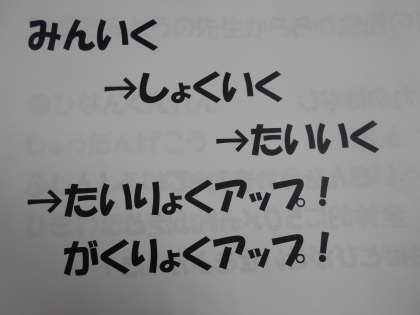 みんいく
→しょくいく
→たいいく
→たいりょくアップ!
がくりょくアップ!